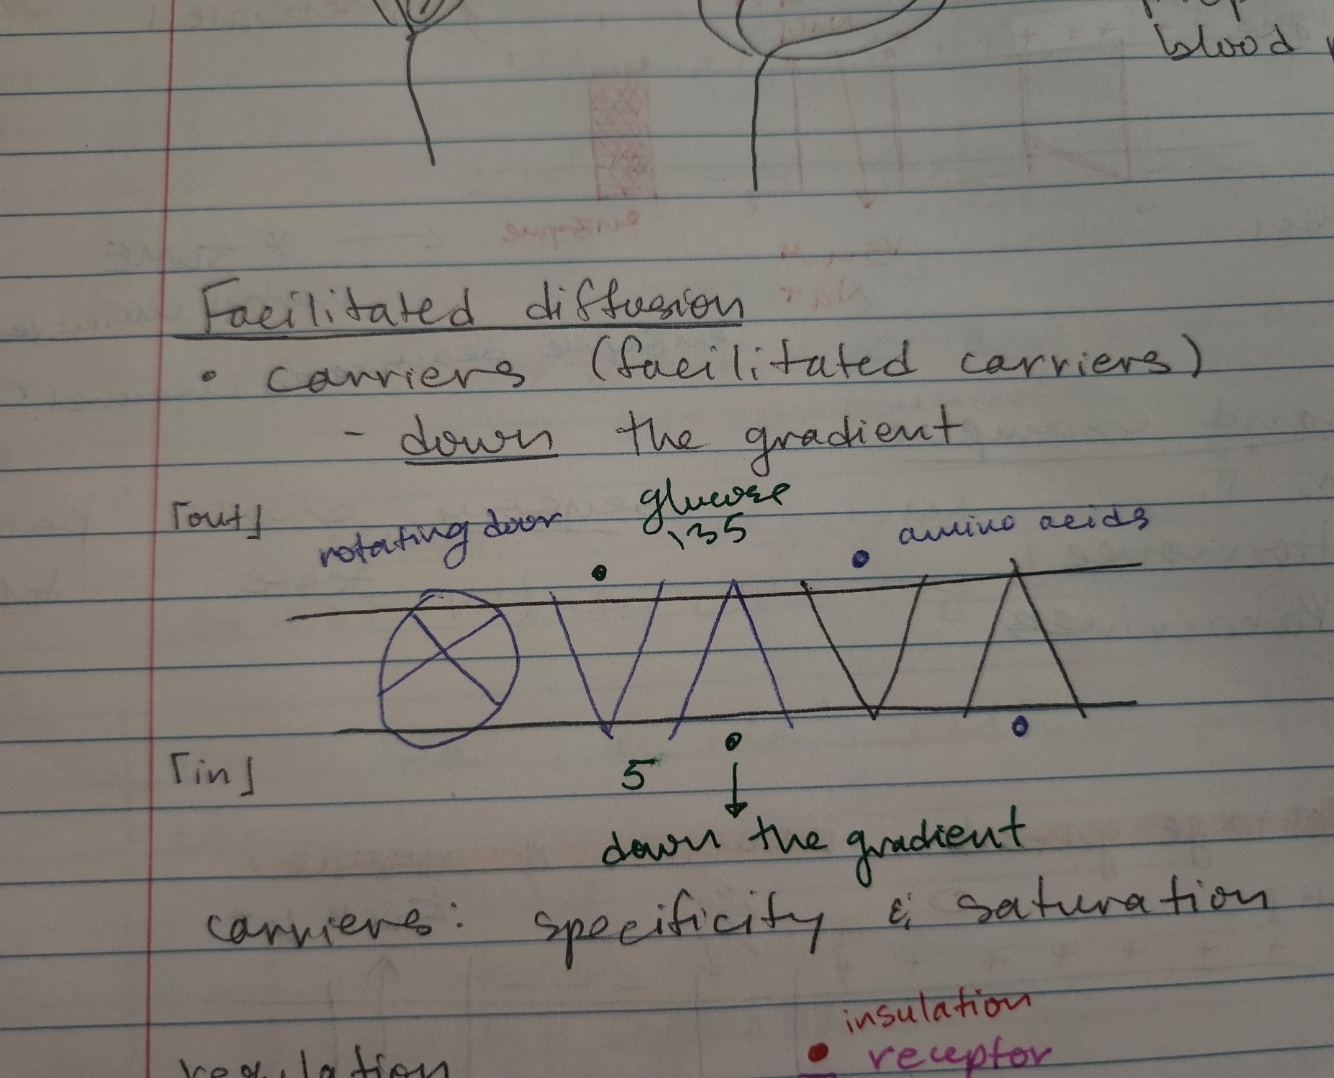 blood
Facilitated diffusion
• carriers (facilitated carriers)
- down the gradient
[out] rotating door glucose amino acids
135
[in] 5
down the gradient
carriers: specificity & saturation
insulation
regulation • receptor